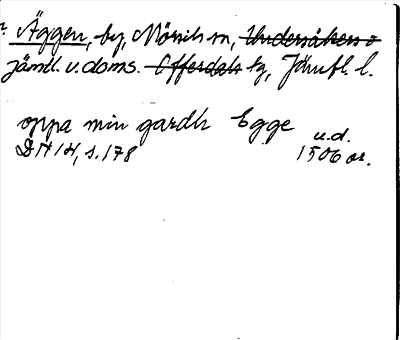 Äggen, by, Mörsils sn, Undersåkers o
Jämtl. v. doms. Offerdals tg, Jämtl. l.
oppa min gardh Egge u.d.
DN 14, s. 178 1506 or.